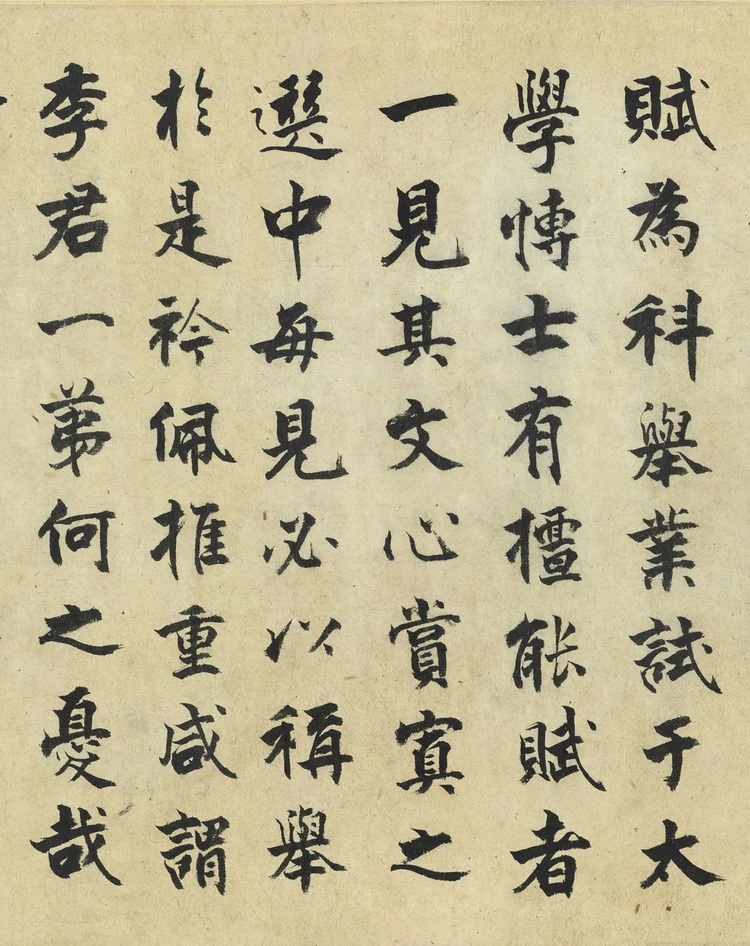 賦為科舉業試于太
學博士有擅能賦者
一見其文心賞寘之
選中每見必以稱舉
於是衿佩推重咸謂
李君一第何之憂哉